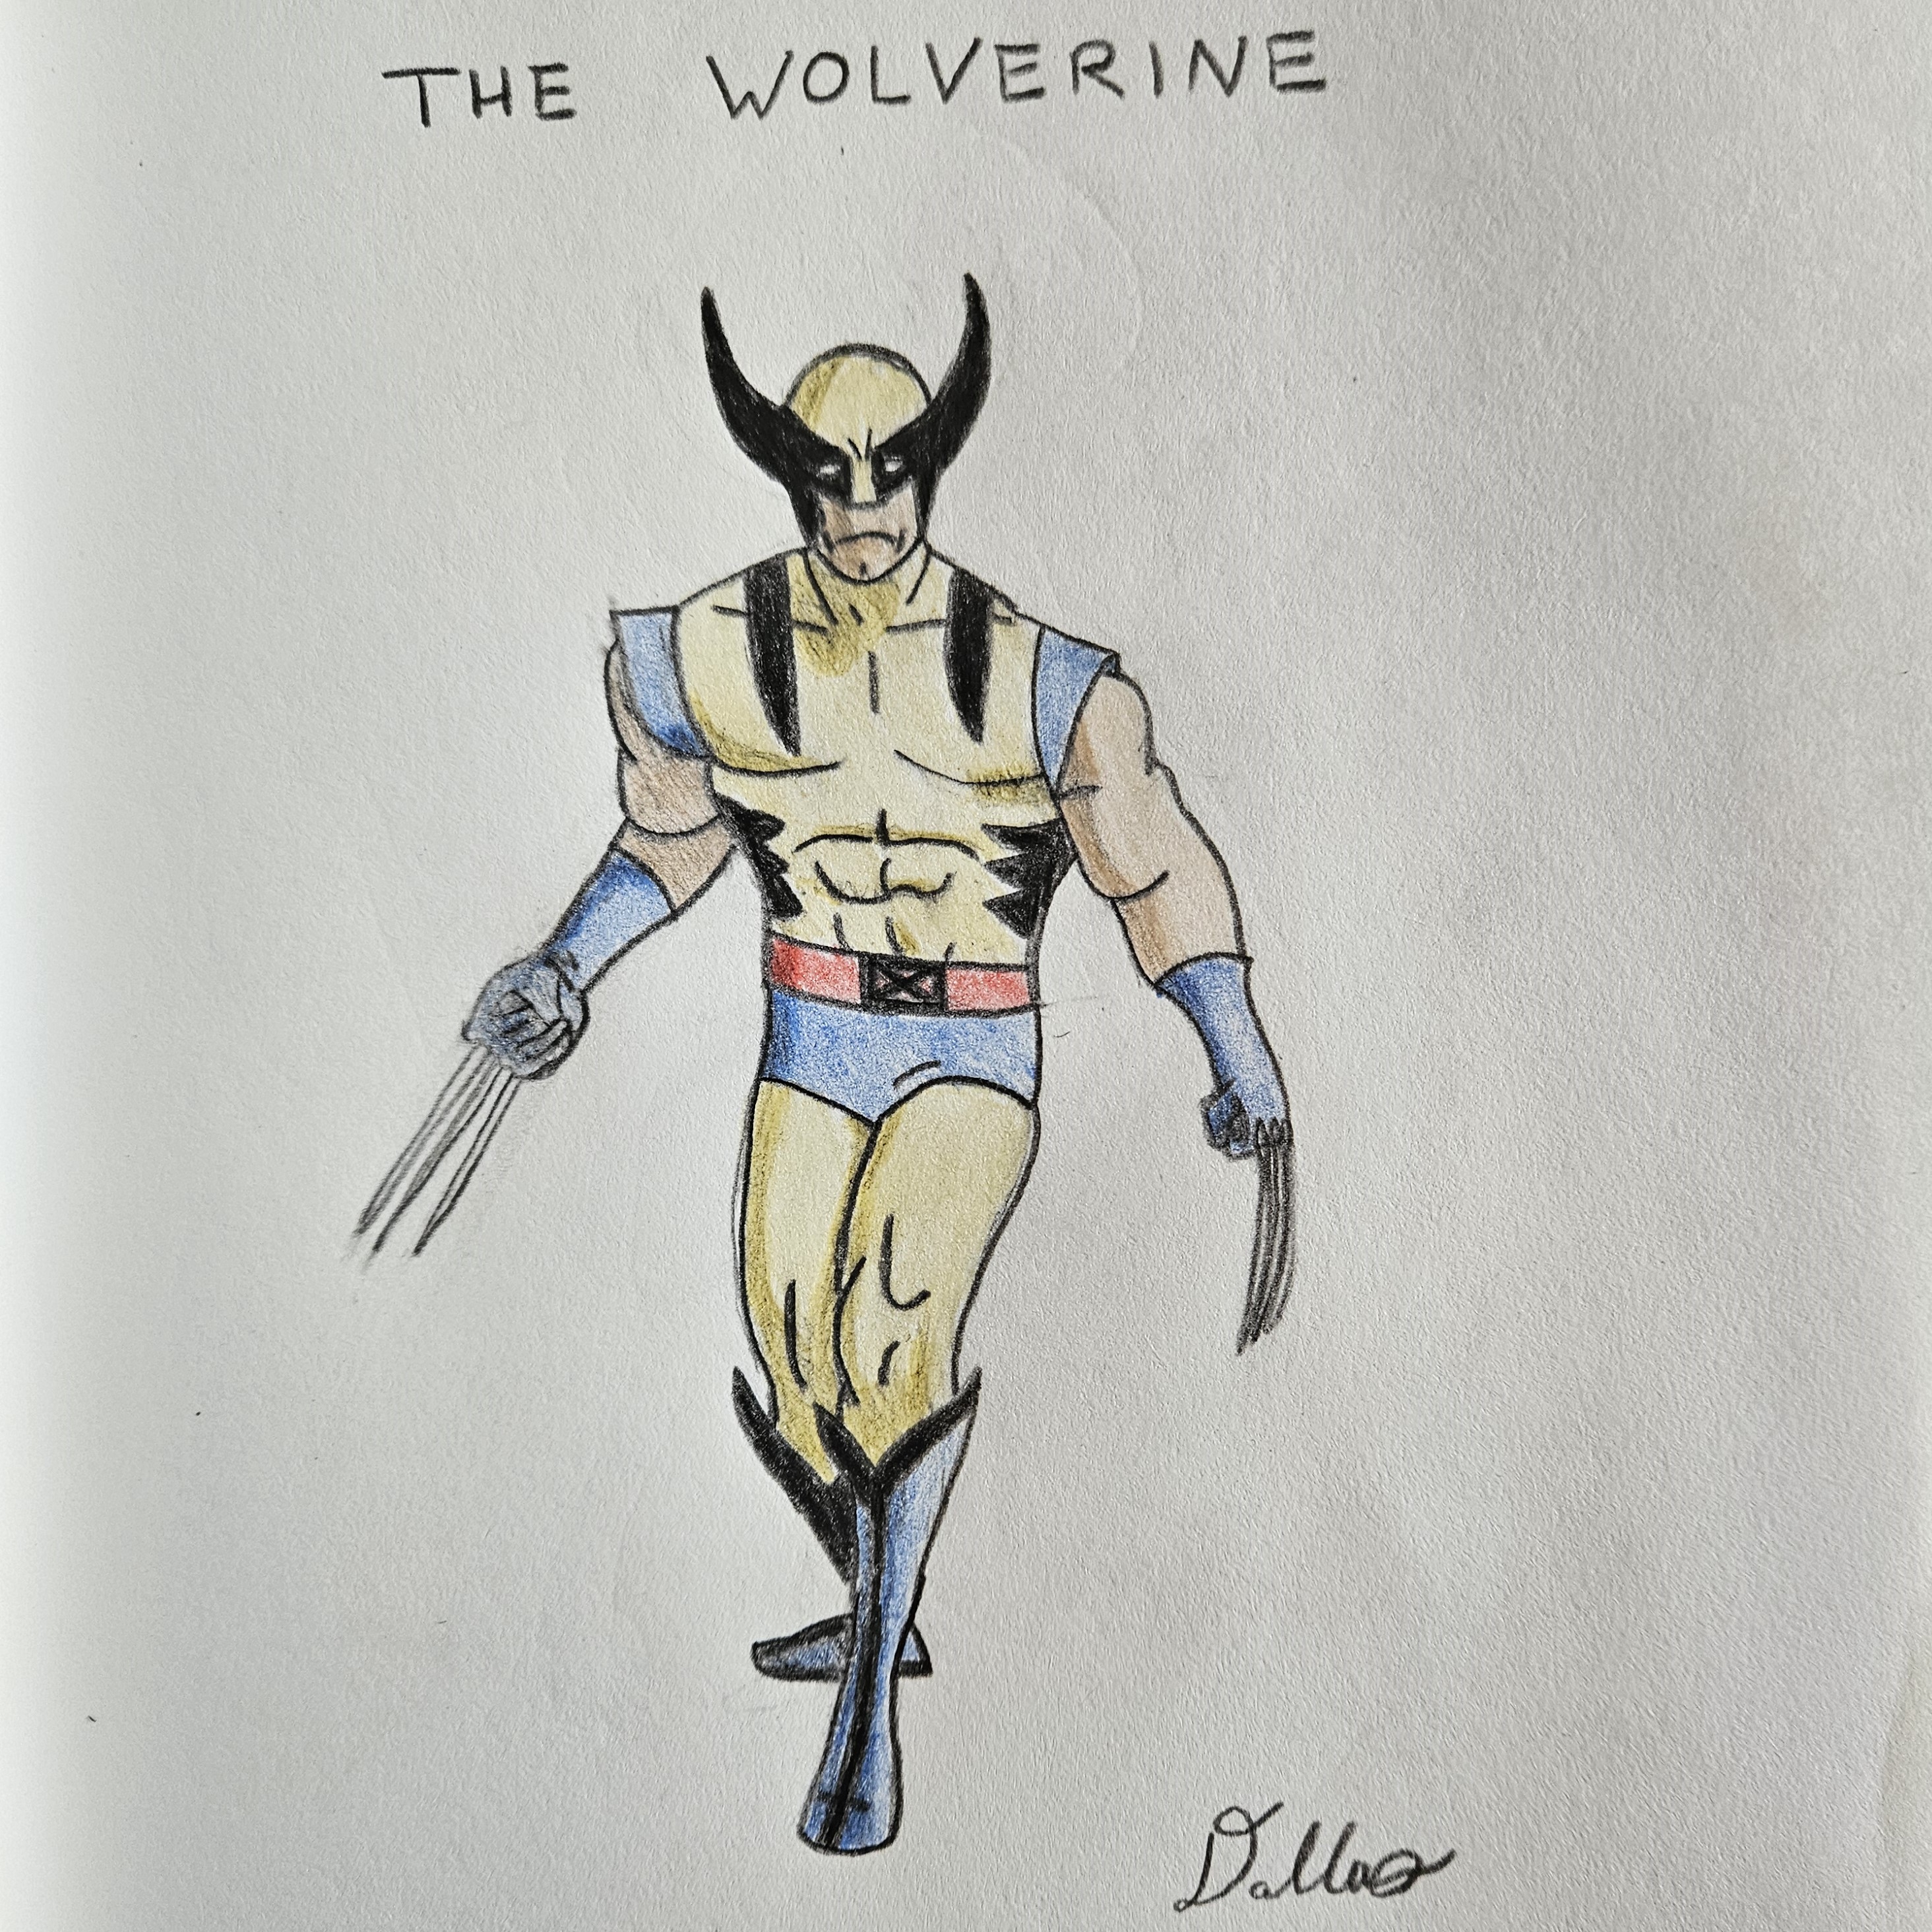 THE WOLVERINE
Dallas